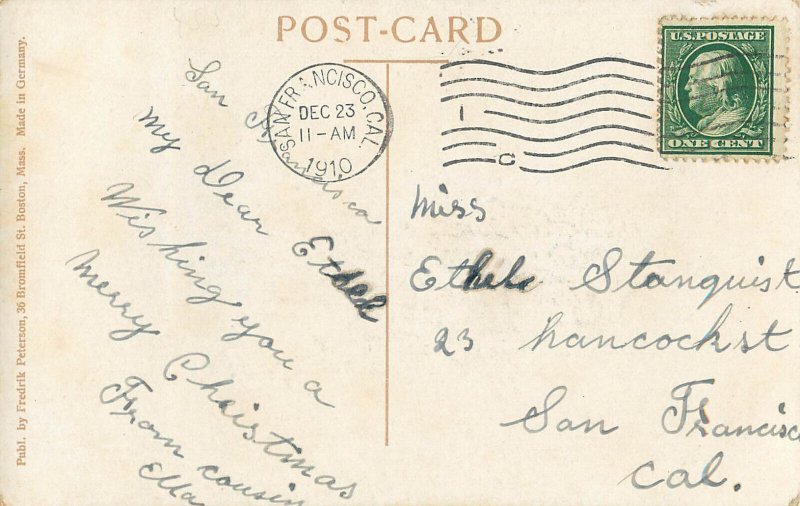 POST-CARD
Publ. by Fredrik Peterson, 36 Bromfield St. Boston, Mass. Made in Germany.
SAN FRANCISCO, CAL.
DEC 23
11-AM
1910
1
C
U.S. POSTAGE
ONE CENT
San Francisco
my Dear Ethel
Wishing you a
merry Christmas
From cousin
Ella
Miss
Ethel Stanquist
23 hancock st
San Francisc
Cal.